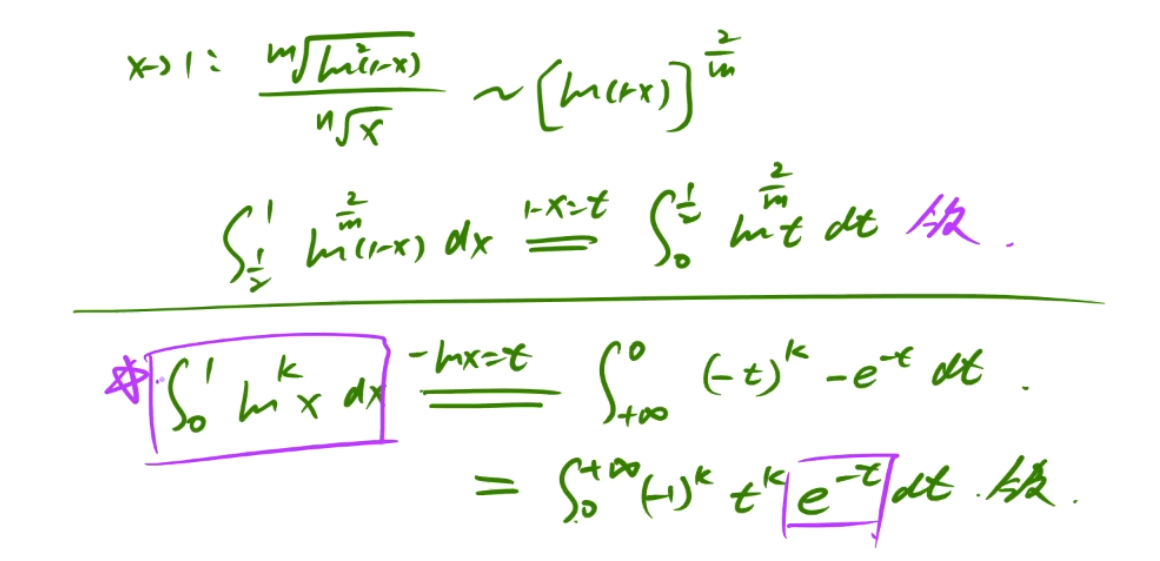 x→1: \frac{\sqrt[m]{\ln^2(1-x)}}{\sqrt[n]{x}} ~ [ln(1-x)]^{\frac{2}{m}}
∫_{\frac{1}{2}}^{1} ln^{\frac{2}{m}}(1-x) dx \xlongequal{1-x=t} ∫_{0}^{\frac{1}{2}} ln^{\frac{2}{m}} t dt 收.
☆ ∫_{0}^{1} ln^k x dx \xlongequal{-lnx=t} ∫_{+∞}^{0} (-t)^k -e^{-t} dt .
= ∫_{0}^{+∞} (-1)^k t^k e^{-t} dt . 收.